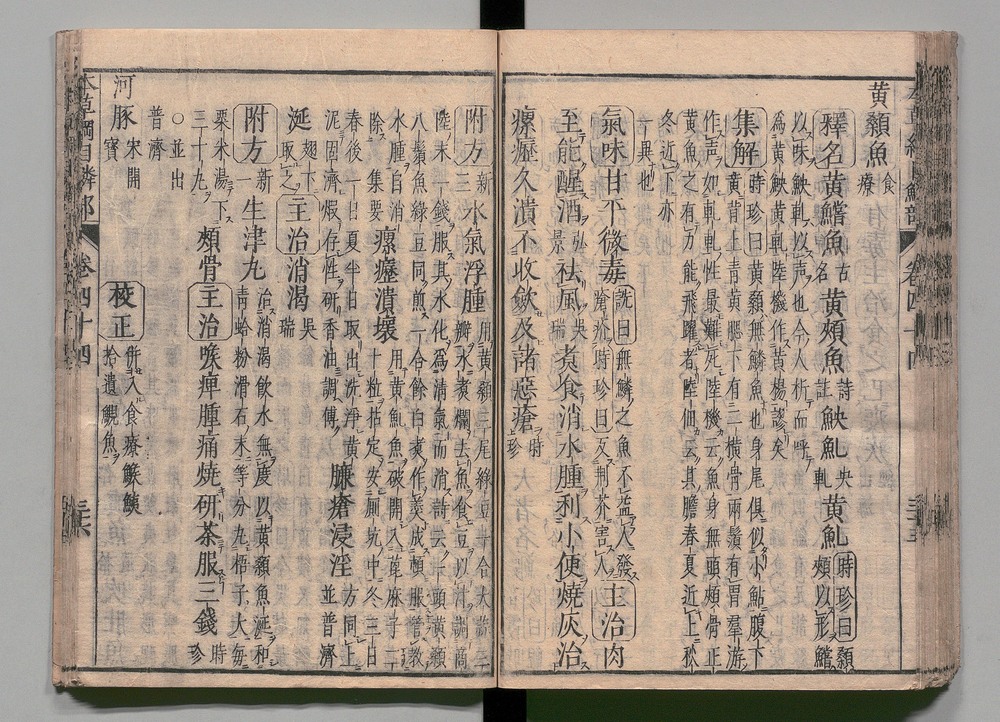 黄顙魚 食療
釋名 黄鱨魚 古名 黄頰魚 詩註 鮧魠 央軋 黄魠 時珍曰顙頰以形鱨
以味鮧魠以声也今人析而呼
爲黄鮧黄軋陸機作黄楊訛矣
集解 時珍曰黄顙無鱗魚也身尾俱似小鮎腹下
黄背上青黄腮下有二横骨兩鬚有胃羣游
作声如軋軋性最難死陸機云魚身無頭頰骨正
黄魚之有力能飛躍者陸佃云其膽春夏近上秋
冬近下亦
一異也
氣味 甘平微毒 詵曰無鱗之魚不益人發
瘡疥時珍曰反荆芥害人 主治 肉
至能醒酒 弘景 祛風 呉瑞 煮食消水腫利小便燒灰治
瘰癧久潰不收斂及諸惡瘡 時珍
附方 新三 水氣浮腫 用黄顙三尾緑豆一合大蒜三
瓣水煮爛去魚食豆以汁調商
陸末一錢服其水化爲清氣而消詩云一頭黄顙
八鬚魚緑豆同煎一合餘白煮作羹成頓服管教
水腫自消
除 集要 瘰癧潰壞 用黄魠魚破開入蓖麻子二
十粒扎定安厠坑中冬三日
春後一日夏半日取出洗淨黄
泥固濟煅存性研香油調傅 臁瘡浸淫 方同上
並普濟
涎 翅下取之 主治 消渴 呉瑞
附方 新一 生津丸 治消渴飲水無度以黄顙魚涎和
青蛤粉滑石末等分丸梧子大毎
粟米湯下
三十丸
頰骨 主治 喉痺腫痛燒研茶服三錢 時珍
○並出
普濟
河豚 宋開寶 校正 併入食療鯸鮧
拾遺鯢魚
本草綱目鱗部 卷四十四